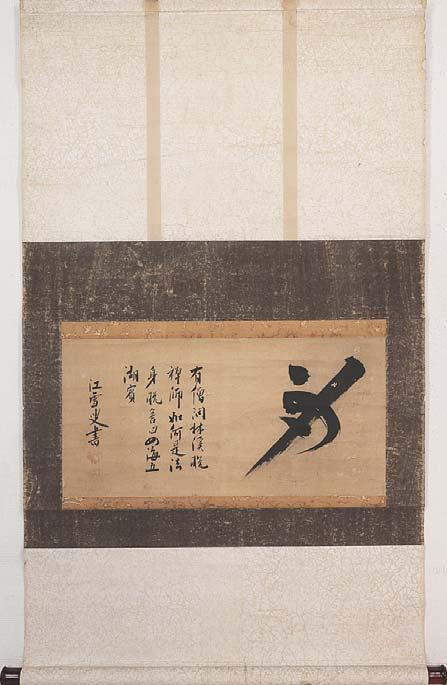 身
有僧問林溪脱
禅師如何是法
身脱答曰四海五
湖賓
江雪叟書